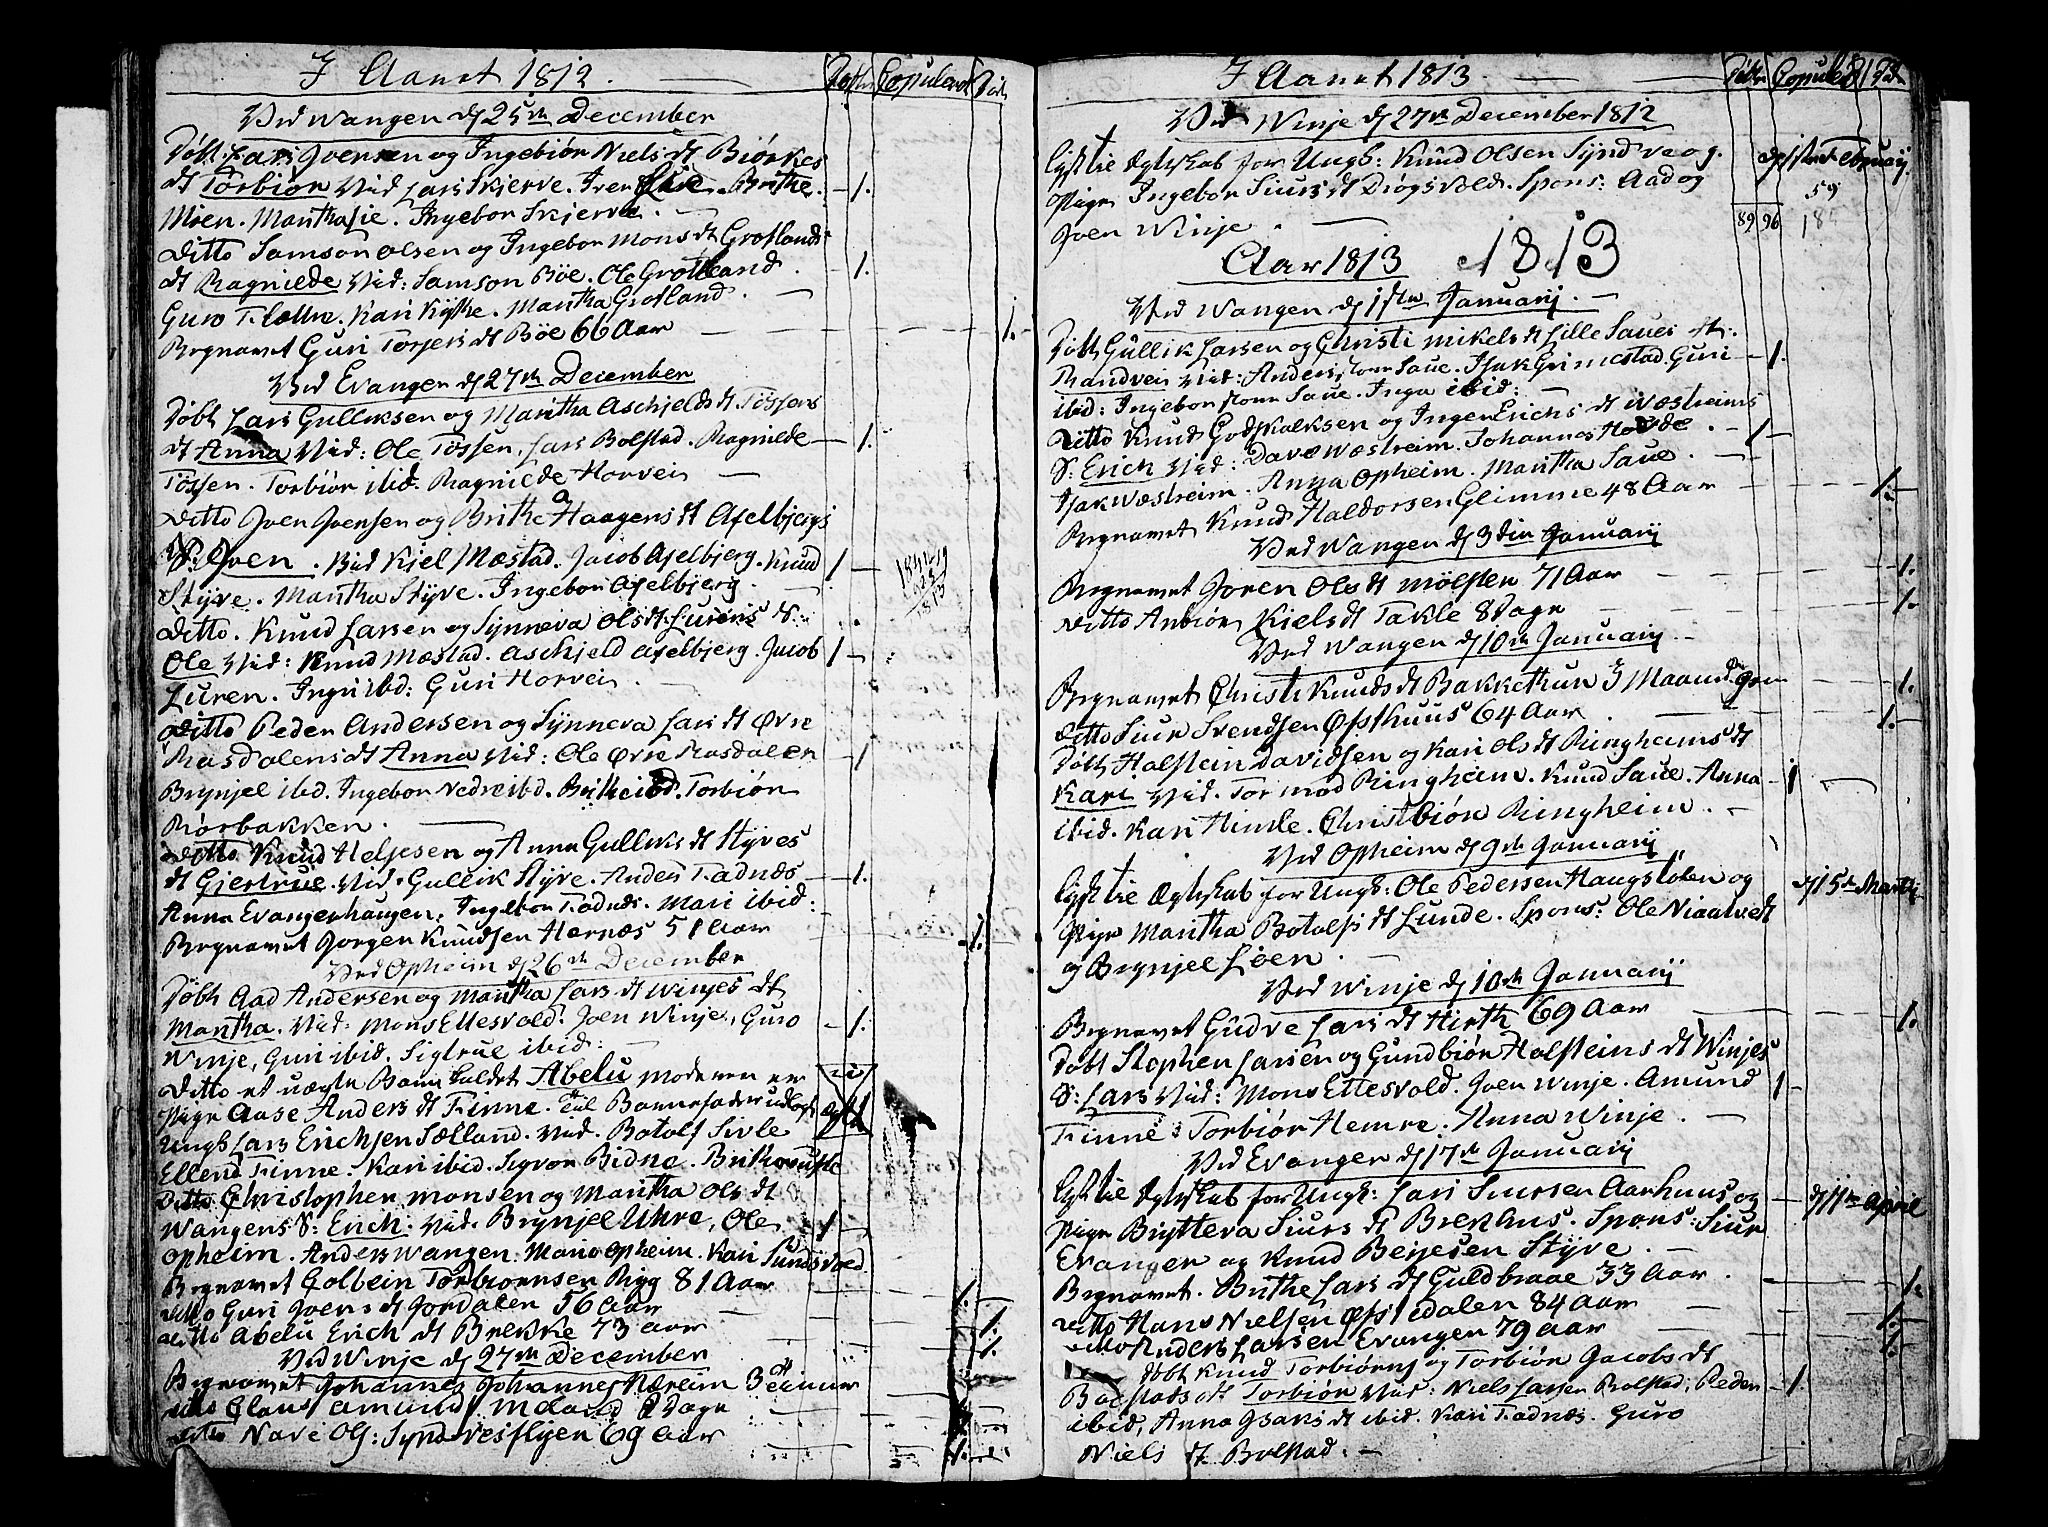 I Aaret 1812. Døbte Copulered Døde
Ved Wangen d 25de December
Døbt Lars Joensen og Ingebiør Niels dt Biørkes
dt Torbiør Vid Lars Skjerve. Iver Lie. Brithe 1.
Moen. Maritha Lie. Ingebor Skjerve.
Ditto Samson Olsen og Ingebor Mons dt Grotlands
dt Ragnilde Vid: Samson Bøe. Ole Grotland 1.
Guro Kari Kytke. Maritha Grotland.
Begravet Guri Torjers dt Bøe 66 Aar 1.
Ved Evanger d 27de December
Døbt Lars Gulliksen og Maritha Aschjelds dt Tøssens
dt Anna Vid: Ole Tøssen, Lars Bolstad. Ragnilde 1.
Tøssen. Torbiør ibid. Ragnilde Horvei
Ditto Joen Joensen og Brithe Haagens dt Afelbjergs
S: Joen. Vid Kiel Mæstad. Jacob Afelbjerg. Knud 1
Styve. Maritha Styve. Ingebor Afelbjerg.
Ditto. Knud Larsen og Synneva Ols dt Lurens S:
Ole Vid: Knud Mæstad. Aschjeld Afelbjerg. Jacob 1
Luren. Ingri ibd: Guri Horvei
Ditto Peder Andersen og Synneva Lars dt Øvre
Rasdalens dt Anna Vid: Ole Øvre Rasdalen 1
Brynjel ibd. Ingebor Nedre ibd. Brithe ibd. Torbiør
Rørbakken.
Ditto Knud Heljesen og Anna Gulliks dt Styves
dt Gjertrue. Vid. Gullik Styve. Anders Fadnæs 1.
Anna Evangerhaugen, Ingebor Fadnæs. Mari ibid:
Begravet Jorgen Knudsen Hernæs 51 Aar 1.
Ved Opheim d 26de December
Døbt Aad Andersen og Maritha Lars dt Winjes dt
Maritha. Vid: Mons Ettesvold. Joen Winje, Guro 1.
Winje, Guri ibid. Sigtrue ibid:
Ditto et uægte Barn kaldet Abelu moderen er
Pige Aase Anders dt Finne. Til Barnefader udlagt
Ungk Lars Erichsen Sælland. Vid. Botolf Sivle
Ellend Finne. Kari ibid. Sygvor Bidne.
Ditto Christopher Monsen og Maritha Ols dt
Wangens S: Erich. Vid. Brynjel Uhre, Ole 1
Opheim. Anders Wangen. Mari Opheim. Kari Sundsvoed.
Begravet Golbein Torbiornsen Rygg 81 Aar 1.
Ditto Guri Joens dt Jordalen 56 Aar 1.
Ditto Abelu Erich dt Brekke 73 Aar 1.
Ved Winje d 27de December
Begravet Johannes Johannes Næreim
Ditto Claus Amunds Dage
Ditto Nave Ols: 69 Aar 1.
I Aaret 1813 Døbte Copulered Døde
Ved Winje d 27de December 1812
Lyst til Ægteskab for Ungk: Knud Olsen Syndve og d 1ste Februarij
Pige Ingebor Siurs dt Drøgsvold. Spons: Aad og 59
Joen Winje. 89 96
Aar 1813 1813
Ved Wangen d 1ste Januarij.
Døbt Gullik Larsen og Christi Mikels dt Lille Saues dt:
Randvei Vid: Anders Saue. Isak Grimestad. Guri 1.
ibid: Ingebor Saue. Inga ibid:
Ditto Knud Godskalksen og Inger Erichs dt Wæstreims
S: Erich Vid: Dave Wæstreim. Johannes 1
Isak Wæstreim. Anna Opheim. Maritha Saue.
Begravet Knud Haldorsen Glimme 48 Aar 1.
Ved Wangen d 3die Januarij
Begravet Joren Ols dt Mølster 71 Aar 1.
Ditto Anbiør Kiels dt Takle 8 Dage 1.
Ved Wangen d 10de Januarij.
Begravet Christi Knuds dt Bakkethun 3 Maaneder 1.
Ditto Siur Svendsen Øfsthuus 64 Aar 1.
Døbt Holstein Davidsen og Kari Ols dt Ringheims dt
Kari Vid. Tormod Ringheim. Knud Saue. Anna 1
ibid. Kari Humle. Christbiør Ringheim.
Ved Opheim d 9de Januarij
Lyst til Ægteskab for Ungk: Ole Pedersen Haugsløen og d 15de Martij
Pige Maritha Botolfs dt Lunde. Spons: Ole
og Brynjel Løen.
Ved Winje d 10de Januarij
Begravet Gudve Lars dt Hirth 69 Aar 1.
Døbt Stephen Larsen og Gundbiør Holsteins dt Winjes
S: Lars Vid: Mons Ettesvold. Joen Winje. Amund 1
Finne: Torbiør Hemre. Anna Winje.
Ved Evanger d 17de Januarij
Lyst til Ægteskab for Ungk: Lars Siursen Aarhuus og d 11te April
Pige Brytteva Siurs dt Brekhus. Spons: Siur
Evanger og Knud Beyesen Styve.
Begravet. Brithe Lars dt Guldbraae 33 Aar. 1.
Ditto Hans Nielsen Øfstedalen 84 Aar 1.
Ditto Anders Larsen Evanger 79 Aar 1.
Døbt Knud Torbiørns og Torbiør Jacobs dt
Bolstads dt Torbiør Vid: Niels Larsen Bolstad. Peder 1.
ibid, Anna Isaks dt ibid. Kari Fadnæs. Guro
Niels dt Bolstad.